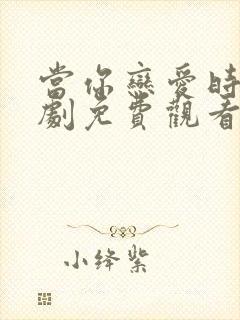 當你戀愛時
劇免費觀看
小绛紫